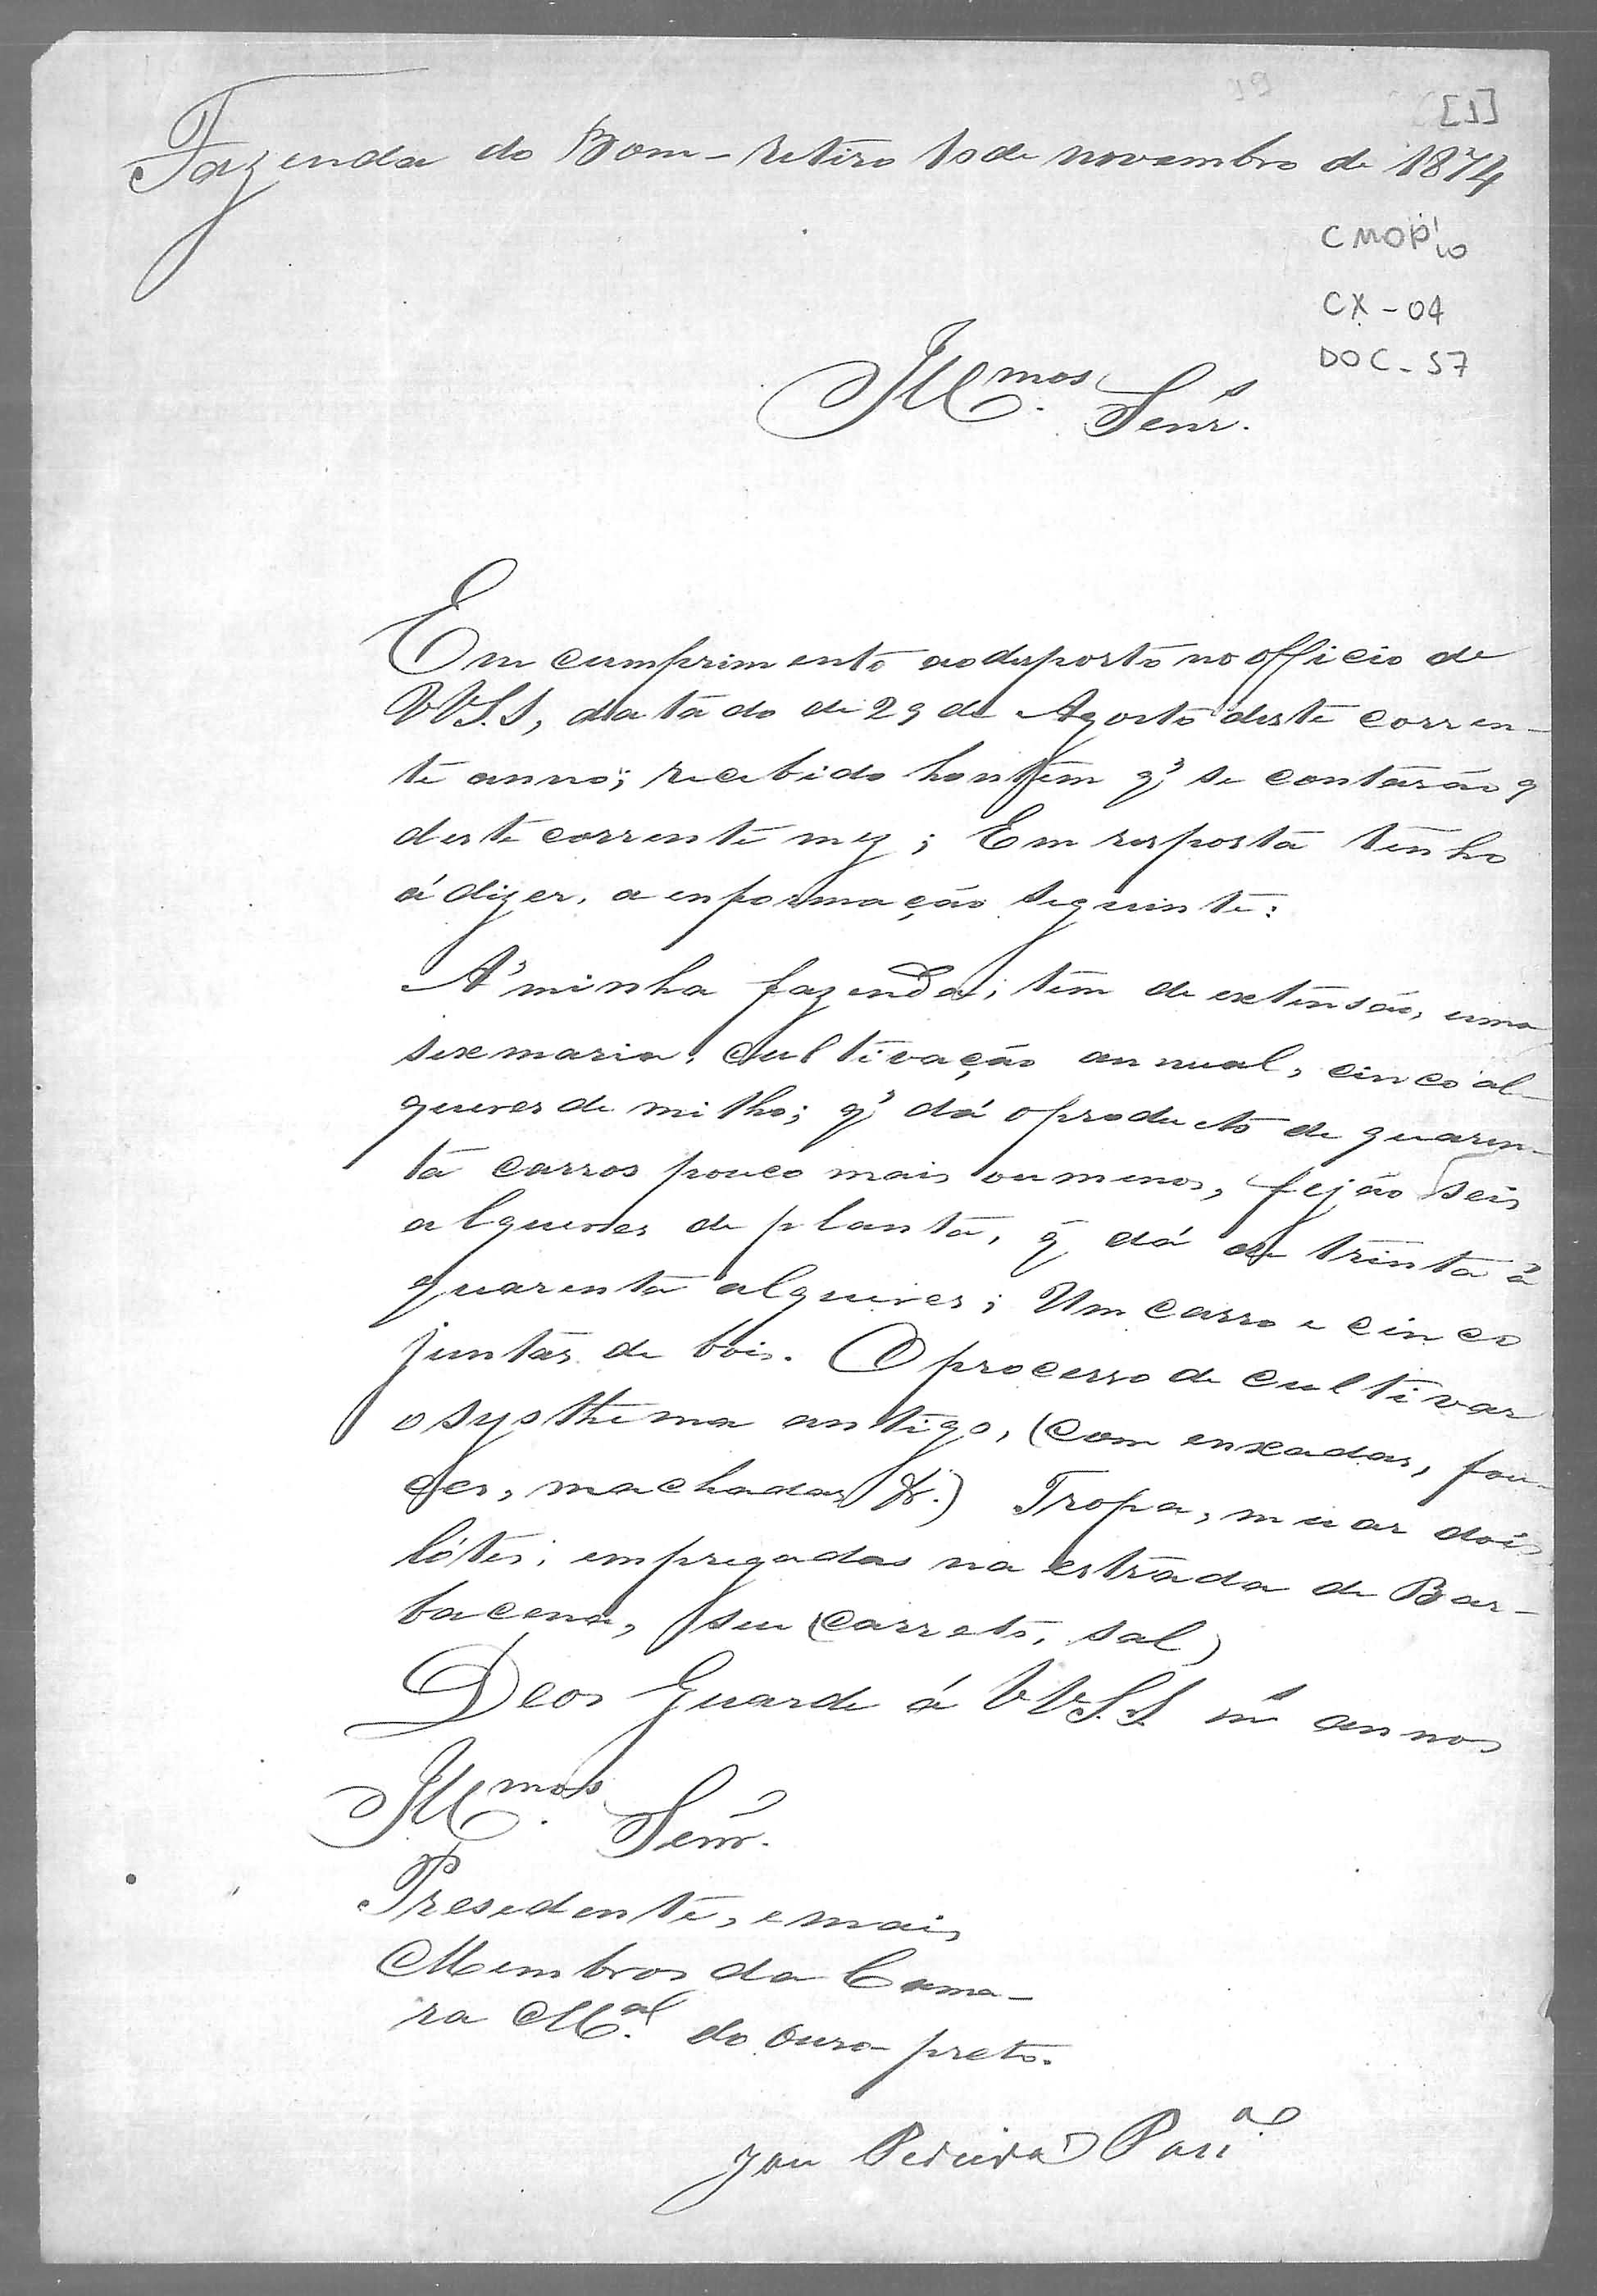 [1]
Fazenda do Bom-retiro 10 de novembro de 1874
CMOP
CX-04
DOC-57
Illmos. Senrs.
Em cumprimento ao desposto no officio de
VV.S.S, datado de 29 de Agosto deste corren-
te anno; recebido hontem q' se contarão 9
deste corrente mez; Em resposta tenho
á dizer, a enformação seguinte:
A' minha fazenda; tem de extensão, uma
sexmaria, cultivação annual, cinco al-
queres de milho; q' dá o producto de quaren-
ta carros pouco mais ou menos, fejão seis
alqueres de planta, q̃ dá de trinta á
quarenta alqueires; Um carro e cinco
juntas de bois. O processo de cultivar
o systhema antigo, (com enxadas, fou-
ces, machados &.) Tropa, muar dois
lótes; empregados na estrada de Bar-
bacena, (seu carreto, sal)
Deos Guarde á VV.S.S ms annos
Illmos. Senr.
Presedente, e mais
Membros da Cama-
ra Mal. do Ouro-preto.
Pereira